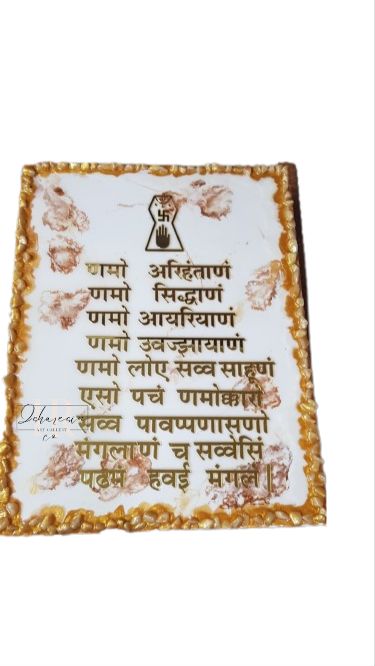 णमो अरिहंताणं
णमो सिद्धाणं
णमो आयरियाणं
णमो उवज्झायाणं
णमो लोए सव्व साहूणं
एसो पचं णमोक्कारो
सव्व पावप्पणासणो
मंगलाणं च सव्वेसिं
पढमं हवई मंगलं|
ART GALLERY